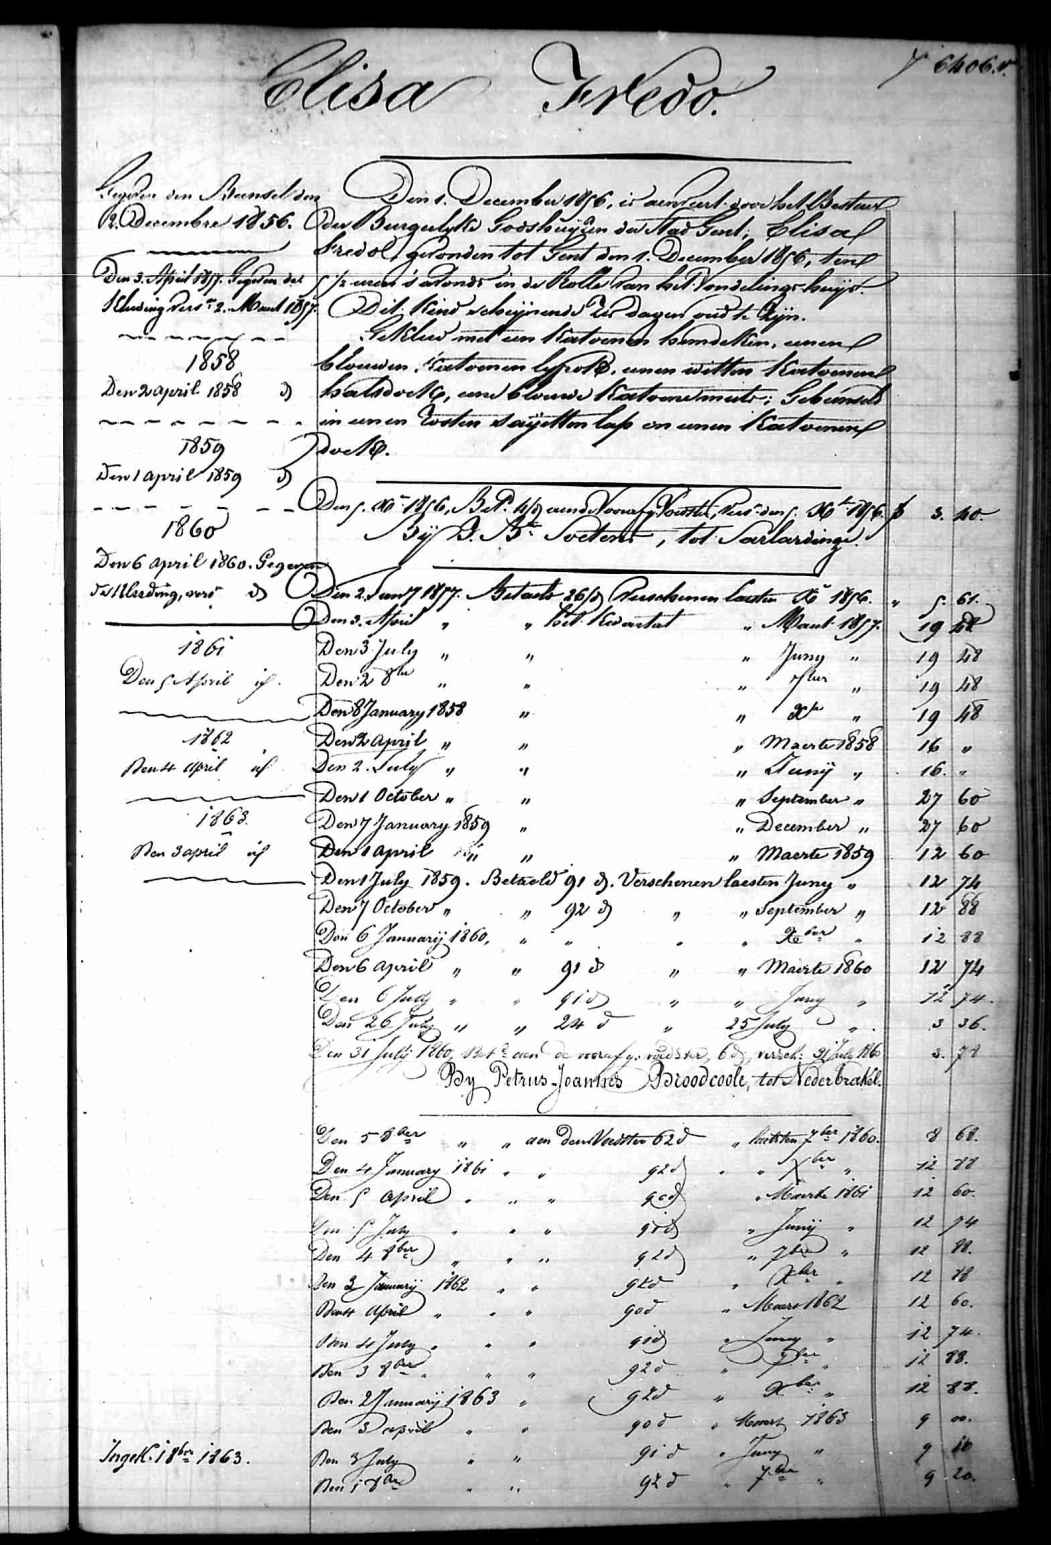 6406.
Elisa Fredo.
Gegeven den Bunsel den
12. Decembre 1856.
Den 3. April 1857. Gegeven de
Kleeding vers. 2. Maart 1857.
1858
Den 2 april 1858 d
1859
Den 1 april 1859 d
1860
Den 6 april 1860. Gegeven
de Kleeding, vers d
1861
Den 5 April id.
1862
Den 4 april id
1863.
Den 3 april id
Ingek. 1 8bre 1863.
Den 1. December 1856, is aenveert door het Bestuur
der Burgerlyke Godshuyzen der Stad Gent; Elisa
Fredo, gevonden tot Gent den 1. December 1856, ten
5 1/2 uren s'avonds in de Rolle van het Vondelings-huys.
Dit Kind scheynende dagen oud te zyn.
Gekleed met een Katoenen hemdeken, eenen
blauwen Katoenen lyfrok, eenen witten Katoenen
halsdoek, eene blauwe Katoene muts; Gebunseld
in eenen rosten sayetten lap en eenen Katoenen
doek.
Den 5. Xbre 1856, Bet. 4/d aen de Voorafg. Voedster, Vers. den 5. Xbre 1856. f 3. 40.
By J. Bte Soetens, tot Sarlardinge.
Den 2. January 1857. Betaeld 26/d Verschenen laesten Xbre 1856. " 5. 61.
Den 3. April " " het Kwartael " Maart 1857. 19 48
Den 3 July " " " Juny " 19 48
Den 2 8bre " " " 7ber " 19 48
Den 8 January 1858 " " Xbre " 19 48
Den 2 april " " " Maerte 1858 16 "
Den 2. July " " " Junÿ " 16. "
Den 1 October " " " September " 27 60
Den 7 January 1859 " " December " 27 60
Den 1 april " " " Maerte 1859 12 60
Den 1 July 1859. Betaeld 91 d. Verschenen laesten Juny " 12 74
Den 7 October " " 92 d " " September " 12 88
Den 6 Januarÿ 1860, " " " " Xber " 12 88
Den 6 april " " 91 d " " Maerte 1860 12 74
Den 6 July " " 91 d " " Juny " 12 74.
Den 26 July " " 24 d " 25 July " 3 36.
Den 31 July 1860, Bet. aen de voorafg. voedster, 6 d, versch. 31 July 1860 3. 78
By Petrus-Joannes Broodcoole, tot Nederbrakel.
Den 5 8ber " " aen den Voedster 62 d " laetsten 7ber 1860. 8 68.
Den 4 January 1861 " " 92 d " " Xber " 12 88
Den 5 April " " " 90 d " Maerte 1861 12 60.
Den 5 July " " " 91 d " Junÿ " 12 74
Den 4 8ber " " " 92 d " 7bre " 12 88.
Den 3 Januarÿ 1862 " " 92 d " Xber " 12 88
Den 4 April " " " 90 d " Maert 1862 12 60.
Den 4 July " " " 91 d " Juny " 12 74.
Den 3 8ber " " " 92 d " 7ber " 12 88.
Den 2 Januarÿ 1863 " 92 d " Xber " 12 88.
Den 3 april " " 90 d " Maert 1863 9 00.
Den 3 July " " 91 d " Juny " 9 10
Den 1 8bre " " 92 d " 7bre " 9 20.